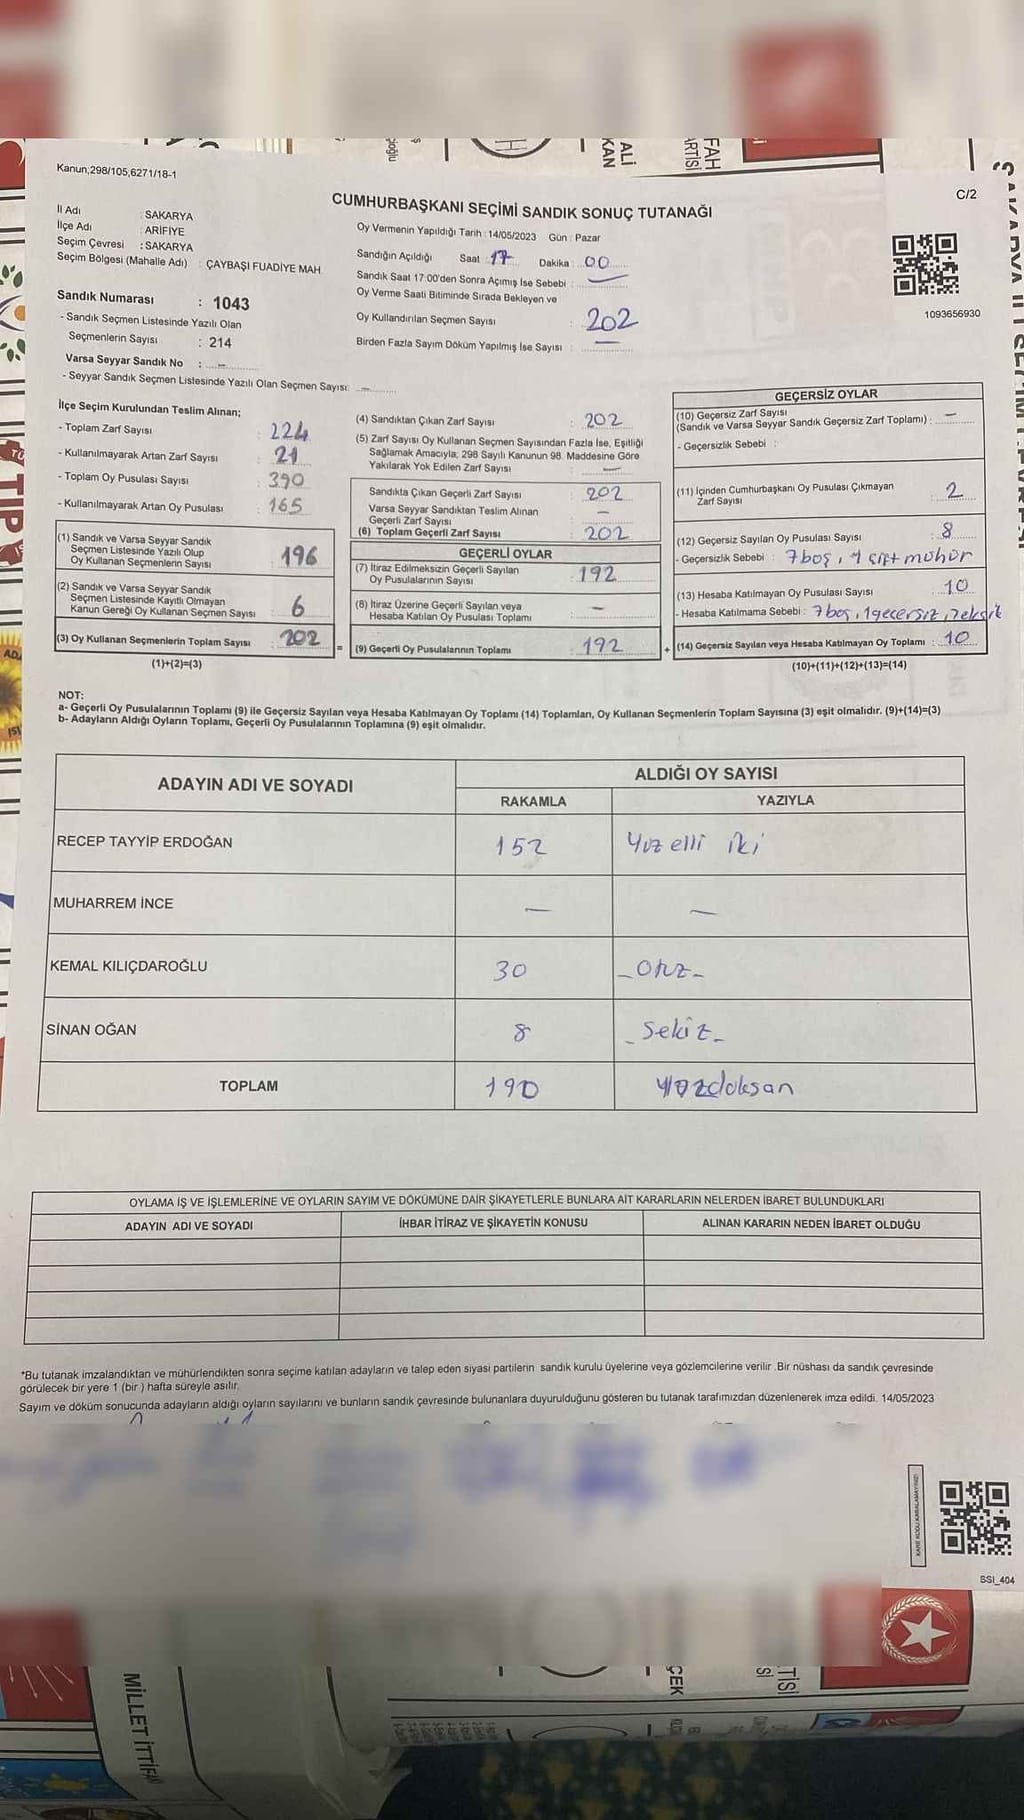 Kanun;298/105,6271/18-1
C/2
CUMHURBAŞKANI SEÇİMİ SANDIK SONUÇ TUTANAĞI
İl Adı : SAKARYA
İlçe Adı : ARİFİYE
Seçim Çevresi : SAKARYA
Seçim Bölgesi (Mahalle Adı) : ÇAYBAŞI FUADİYE MAH.
Sandık Numarası : 1043
- Sandık Seçmen Listesinde Yazılı Olan
Seçmenlerin Sayısı : 214
Varsa Seyyar Sandık No : —
- Seyyar Sandık Seçmen Listesinde Yazılı Olan Seçmen Sayısı: —
Oy Vermenin Yapıldığı Tarih : 14/05/2023 Gün : Pazar
Sandığın Açıldığı Saat 17 Dakika : 00
Sandık Saat 17:00'den Sonra Açımış İse Sebebi : —
Oy Verme Saati Bitiminde Sırada Bekleyen ve
Oy Kullandırılan Seçmen Sayısı : 202
Birden Fazla Sayım Döküm Yapılmış İse Sayısı : —
1093656930
İlçe Seçim Kurulundan Teslim Alınan;
- Toplam Zarf Sayısı : 224
- Kullanılmayarak Artan Zarf Sayısı : 21
- Toplam Oy Pusulası Sayısı : 390
- Kullanılmayarak Artan Oy Pusulası : 165
(1) Sandık ve Varsa Seyyar Sandık
Seçmen Listesinde Yazılı Olup
Oy Kullanan Seçmenlerin Sayısı : 196
(2) Sandık ve Varsa Seyyar Sandık
Seçmen Listesinde Kayıtlı Olmayan
Kanun Gereği Oy Kullanan Seçmen Sayısı : 6
(3) Oy Kullanan Seçmenlerin Toplam Sayısı : 202
(1)+(2)=(3)
(4) Sandıktan Çıkan Zarf Sayısı : 202
(5) Zarf Sayısı Oy Kullanan Seçmen Sayısından Fazla İse, Eşitliği
Sağlamak Amacıyla; 298 Sayılı Kanunun 98. Maddesine Göre
Yakılarak Yok Edilen Zarf Sayısı : —
Sandıkta Çıkan Geçerli Zarf Sayısı : 202
Varsa Seyyar Sandıktan Teslim Alınan
Geçerli Zarf Sayısı : —
(6) Toplam Geçerli Zarf Sayısı : 202
GEÇERLİ OYLAR
(7) İtiraz Edilmeksizin Geçerli Sayılan
Oy Pusulalarının Sayısı : 192
(8) İtiraz Üzerine Geçerli Sayılan veya
Hesaba Katılan Oy Pusulası Toplamı : —
= (9) Geçerli Oy Pusulalarının Toplamı : 192 +
GEÇERSİZ OYLAR
(10) Geçersiz Zarf Sayısı
(Sandık ve Varsa Seyyar Sandık Geçersiz Zarf Toplamı) : —
- Geçersizlik Sebebi :
(11) İçinden Cumhurbaşkanı Oy Pusulası Çıkmayan
Zarf Sayısı : 2
(12) Geçersiz Sayılan Oy Pusulası Sayısı : 8
- Geçersizlik Sebebi : 7 boş, 1 çift mühür
(13) Hesaba Katılmayan Oy Pusulası Sayısı : 10
- Hesaba Katılmama Sebebi : 7 boş, 1 geçersiz,
(14) Geçersiz Sayılan veya Hesaba Katılmayan Oy Toplamı : 10
(10)+(11)+(12)+(13)=(14)
NOT:
a- Geçerli Oy Pusulalarının Toplamı (9) ile Geçersiz Sayılan veya Hesaba Katılmayan Oy Toplamı (14) Toplamları, Oy Kullanan Seçmenlerin Toplam Sayısına (3) eşit olmalıdır. (9)+(14)=(3)
b- Adayların Aldığı Oyların Toplamı, Geçerli Oy Pusulalarının Toplamına (9) eşit olmalıdır.
ADAYIN ADI VE SOYADI
ALDIĞI OY SAYISI
RAKAMLA YAZIYLA
RECEP TAYYİP ERDOĞAN 152 Yüz elli iki
MUHARREM İNCE — —
KEMAL KILIÇDAROĞLU 30 - Otuz -
SİNAN OĞAN 8 - Sekiz -
TOPLAM 190 Yüzdoksan
OYLAMA İŞ VE İŞLEMLERİNE VE OYLARIN SAYIM VE DÖKÜMÜNE DAİR ŞİKAYETLERLE BUNLARA AİT KARARLARIN NELERDEN İBARET BULUNDUKLARI
ADAYIN ADI VE SOYADI İHBAR İTİRAZ VE ŞİKAYETİN KONUSU ALINAN KARARIN NEDEN İBARET OLDUĞU
*Bu tutanak imzalandıktan ve mühürlendikten sonra seçime katılan adayların ve talep eden siyasi partilerin sandık kurulu üyelerine veya gözlemcilerine verilir .Bir nüshası da sandık çevresinde
görülecek bir yere 1 (bir ) hafta süreyle asılır.
Sayım ve döküm sonucunda adayların aldığı oyların sayılarını ve bunların sandık çevresinde bulunanlara duyurulduğunu gösteren bu tutanak tarafımızdan düzenlenerek imza edildi. 14/05/2023
KARE KODU KARALAMAYINIZ!
SSI_404
MİLLET İTTİFAKI